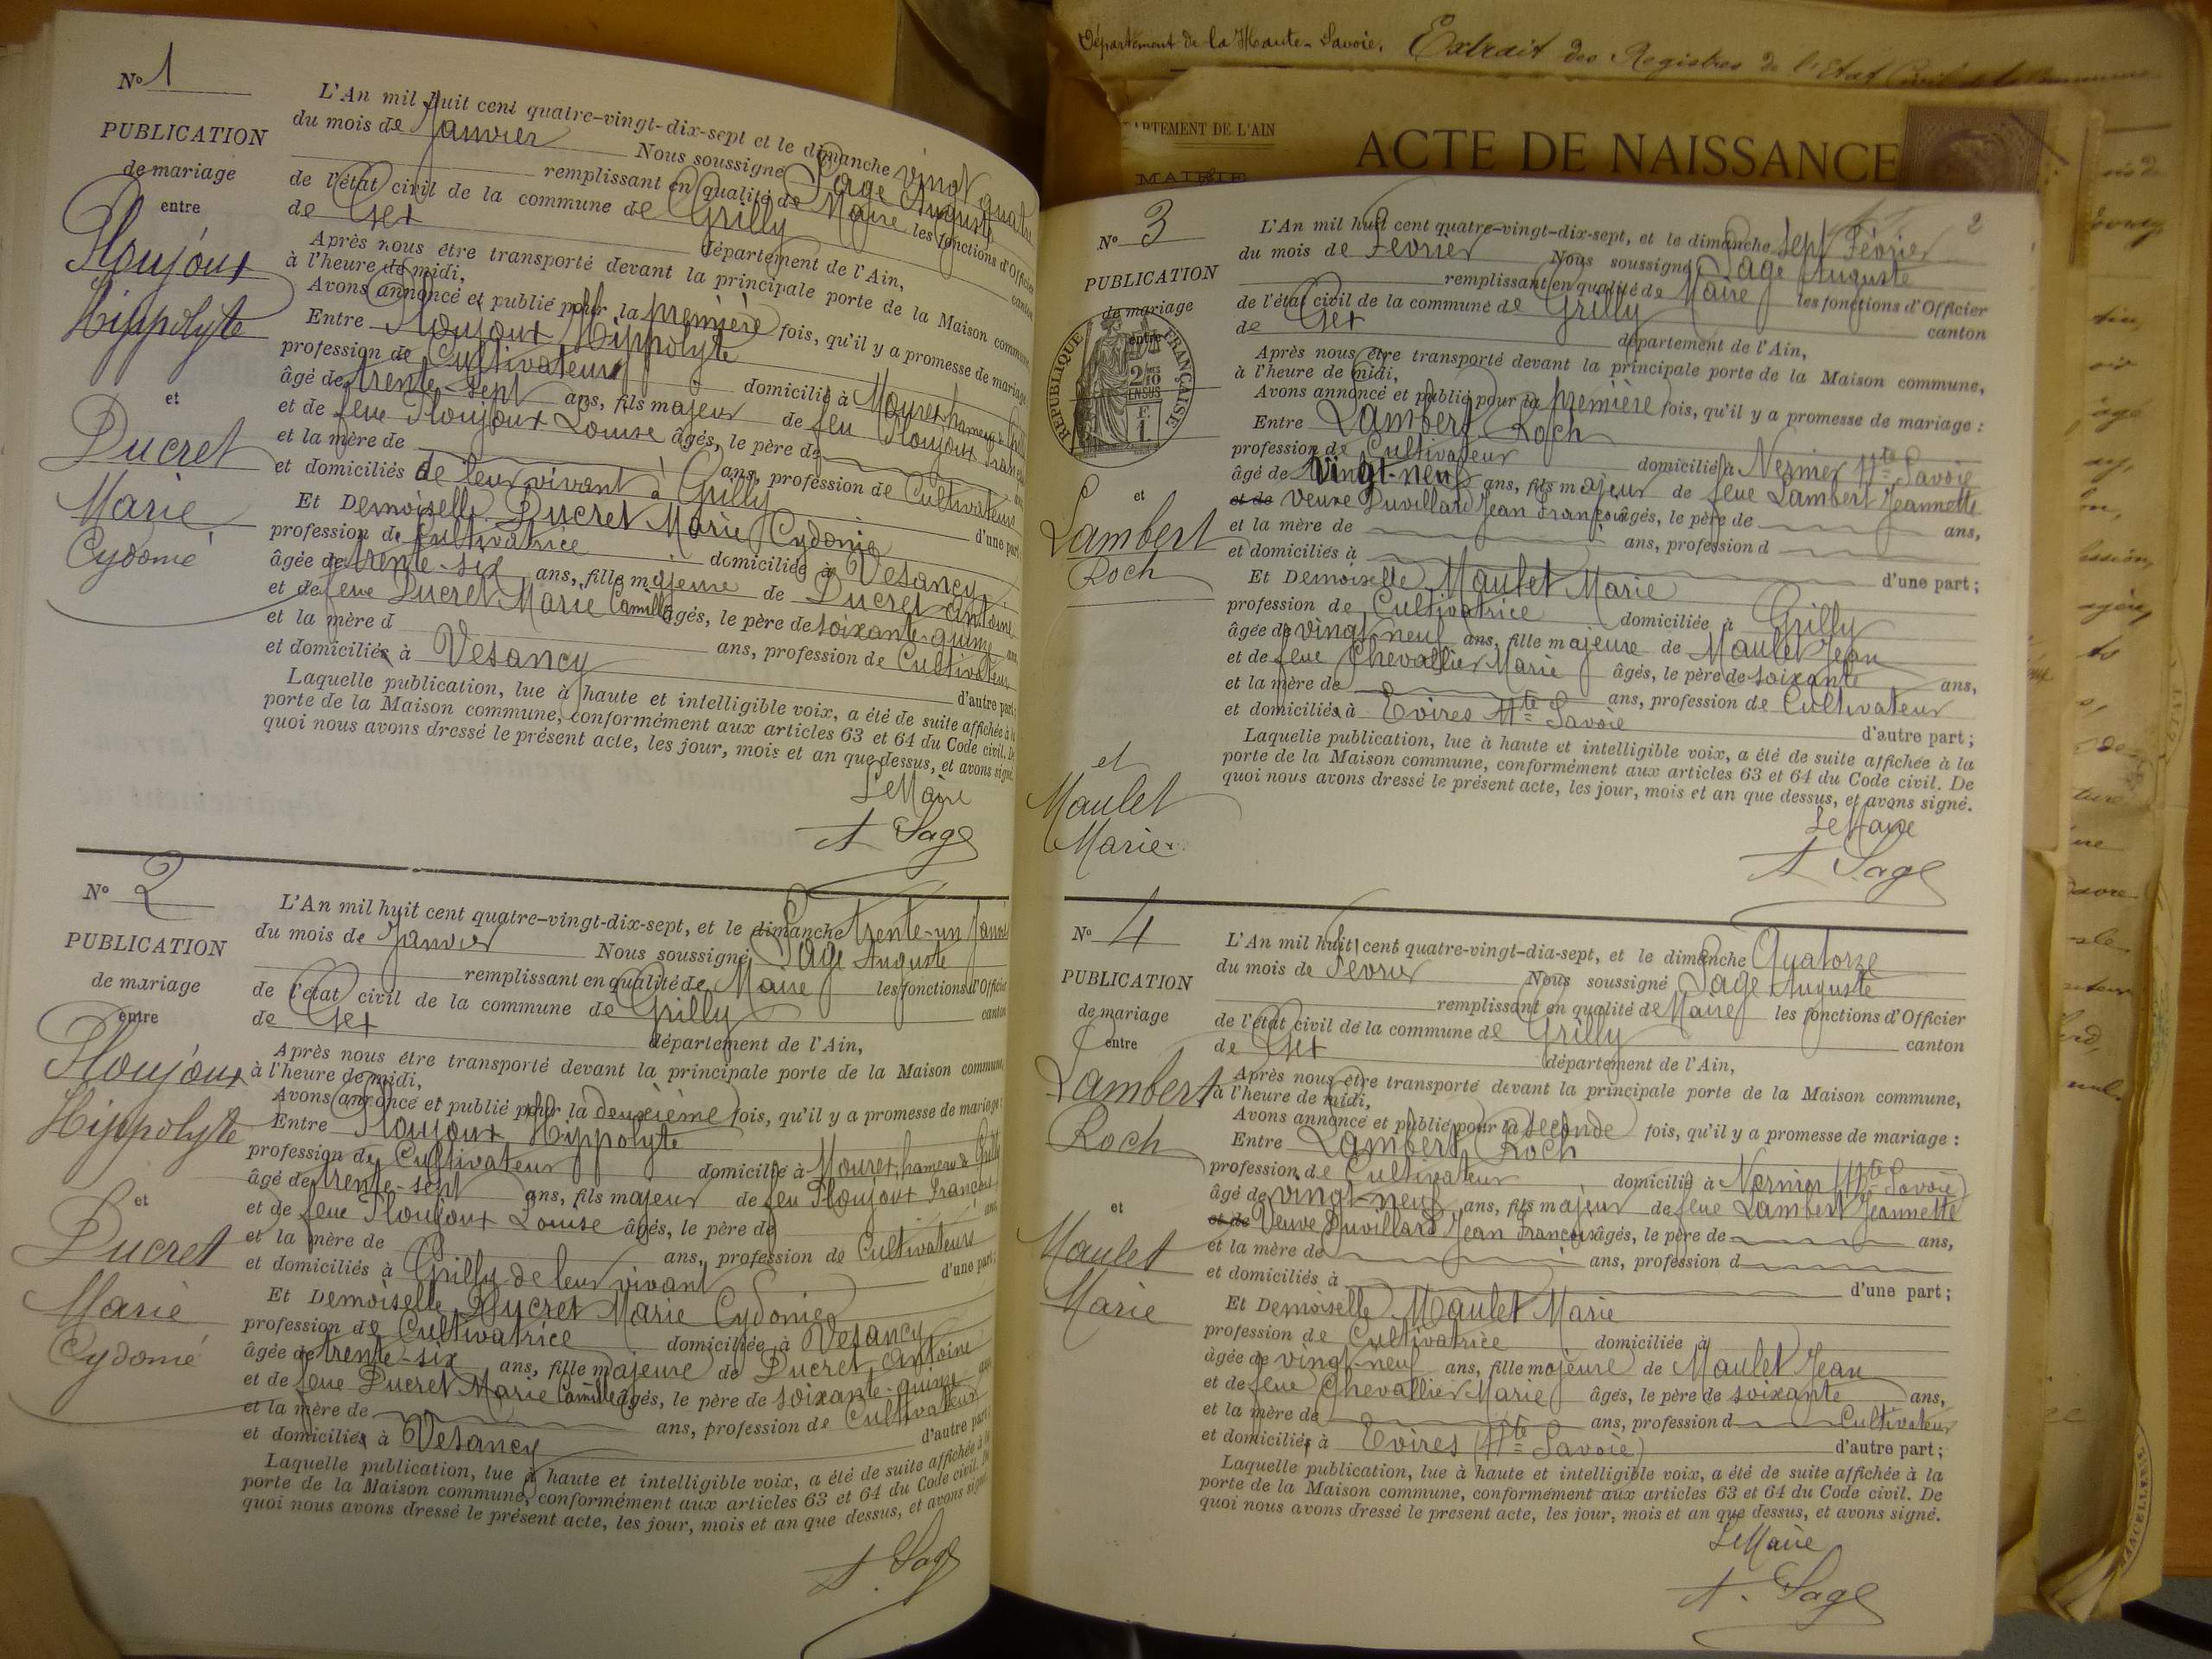 N° 1
PUBLICATION
de mariage
entre
Ploujoux
Hippolyte
et
Ducret
Marie
Cydonie
L'An mil huit cent quatre-vingt-dix-sept et le dimanche vingt quatre
du mois de Janvier Nous soussigné Sage Auguste
remplissant en qualité de Maire les fonctions d'Officier
de l'état civil de la commune de Grilly canton
de Gex département de l'Ain,
Après nous être transporté devant la principale porte de la Maison commune,
à l'heure de midi,
Avons annoncé et publié pour la première fois, qu'il y a promesse de mariage
Entre Ploujoux Hippolyte
profession de Cultivateur domicilié à Mourex hameau de Grilly
âgé de trente-sept ans, fils majeur de feu Ploujoux François
et de feue Ploujoux Louise âgés, le père de ans,
et la mère de ans, profession de Cultivateurs
et domiciliés de leur vivant à Grilly d'une part
Et Demoiselle Ducret Marie Cydonie
profession de Cultivatrice domiciliée à Vesancy
âgée de trente-six ans, fille majeure de Ducret Antoine
et de feue Ducret Marie Camille âgés, le père de soixante-quinze ans,
et la mère d ans, profession de Cultivateur
et domiciliés à Vesancy d'autre part;
Laquelle publication, lue à haute et intelligible voix, a été de suite affichée à la
porte de la Maison commune, conformément aux articles 63 et 64 du Code civil. De
quoi nous avons dressé le présent acte, les jour, mois et an que dessus, et avons signé.
Le Maire
A Sage
N° 2
PUBLICATION
de mariage
entre
Ploujoux
Hippolyte
et
Ducret
Marie
Cydonie
L'An mil huit cent quatre-vingt-dix-sept, et le dimanche trente-un Janvier
du mois de Janvier Nous soussigné Sage Auguste
remplissant en qualité de Maire les fonctions d'Officier
de l'état civil de la commune de Grilly canton
de Gex département de l'Ain,
Après nous être transporté devant la principale porte de la Maison commune,
à l'heure de midi,
Avons annoncé et publié pour la deuxième fois, qu'il y a promesse de mariage:
Entre Ploujoux Hippolyte
profession de Cultivateur domicilié à Mourex, hameau de Grilly
âgé de trente-sept ans, fils majeur de feu Ploujoux François
et de feue Ploujoux Louise âgés, le père de ans,
et la mère de ans, profession de Cultivateurs
et domiciliés à Grilly de leur vivant d'une part;
Et Demoiselle Ducret Marie Cydonie
profession de Cultivatrice domiciliée à Vesancy
âgée de trente-six ans, fille majeure de Ducret Antoine
et de feue Ducret Marie Camille âgés, le père de soixante-quinze ans
et la mère de ans, profession de Cultivateur
et domiciliés à Vesancy d'autre part;
Laquelle publication, lue à haute et intelligible voix, a été de suite affichée à la
porte de la Maison commune, conformément aux articles 63 et 64 du Code civil. De
quoi nous avons dressé le présent acte, les jour, mois et an que dessus, et avons signé.
A. Sage
Département de la Haute-Savoie. Extrait des Registres de l'Etat Civil de la Commune
DÉPARTEMENT DE L'AIN
MAIRIE
ACTE DE NAISSANCE
2
N° 3
PUBLICATION
de mariage
entre
RÉPUBLIQUE FRANÇAISE
2/10
EN SUS
et
Lambert
Roch
et
Maulet
Marie
L'An mil huit cent quatre-vingt-dix-sept, et le dimanche sept Février
du mois de Février Nous soussigné Sage Auguste
remplissant en qualité de Maire les fonctions d'Officier
de l'état civil de la commune de Grilly canton
de Gex département de l'Ain,
Après nous être transporté devant la principale porte de la Maison commune,
à l'heure de midi,
Avons annoncé et publié pour la première fois, qu'il y a promesse de mariage :
Entre Lambert Roch
profession de Cultivateur domicilié à Nernier Hte Savoie
âgé de vingt-neuf ans, fils majeur de feue Lambert Jeannette
et de Veuve Duvillard Jean François âgés, le père de ans,
et la mère de ans, profession d
et domiciliés à d'une part;
Et Demoiselle Maulet Marie
profession de Cultivatrice domiciliée à Grilly
âgée de vingt-neuf ans, fille majeure de Maulet Jean
et de feue Chevallier Marie âgés, le père de soixante ans,
et la mère de ans, profession de Cultivateur
et domiciliés à Evires Hte Savoie d'autre part;
Laquelle publication, lue à haute et intelligible voix, a été de suite affichée à la
porte de la Maison commune, conformément aux articles 63 et 64 du Code civil. De
quoi nous avons dressé le présent acte, les jour, mois et an que dessus, et avons signé.
Le Maire
A Sage
N° 4
PUBLICATION
de mariage
entre
Lambert
Roch
et
Maulet
Marie
L'An mil huit cent quatre-vingt-dix-sept, et le dimanche Quatorze
du mois de Février Nous soussigné Sage Auguste
remplissant en qualité de Maire les fonctions d'Officier
de l'état civil de la commune de Grilly canton
de Gex département de l'Ain,
Après nous être transporté devant la principale porte de la Maison commune,
à l'heure de midi,
Avons annoncé et publié pour la seconde fois, qu'il y a promesse de mariage :
Entre Lambert Roch
profession de Cultivateur domicilié à Nernier (Hte Savoie)
âgé de vingt-neuf ans, fils majeur de feue Lambert Jeannette
et de Veuve Duvillard Jean François âgés, le père de ans,
et la mère de ans, profession d
et domiciliés à d'une part;
Et Demoiselle Maulet Marie
profession de Cultivatrice domiciliée à
âgée de vingt-neuf ans, fille majeure de Maulet Jean
et de feue Chevallier Marie âgés, le père de soixante ans,
et la mère de ans, profession d Cultivateur
et domiciliés à Evires (Hte Savoie) d'autre part;
Laquelle publication, lue à haute et intelligible voix, a été de suite affichée à la
porte de la Maison commune, conformément aux articles 63 et 64 du Code civil. De
quoi nous avons dressé le présent acte, les jour, mois et an que dessus, et avons signé.
Le Maire
A. Sage